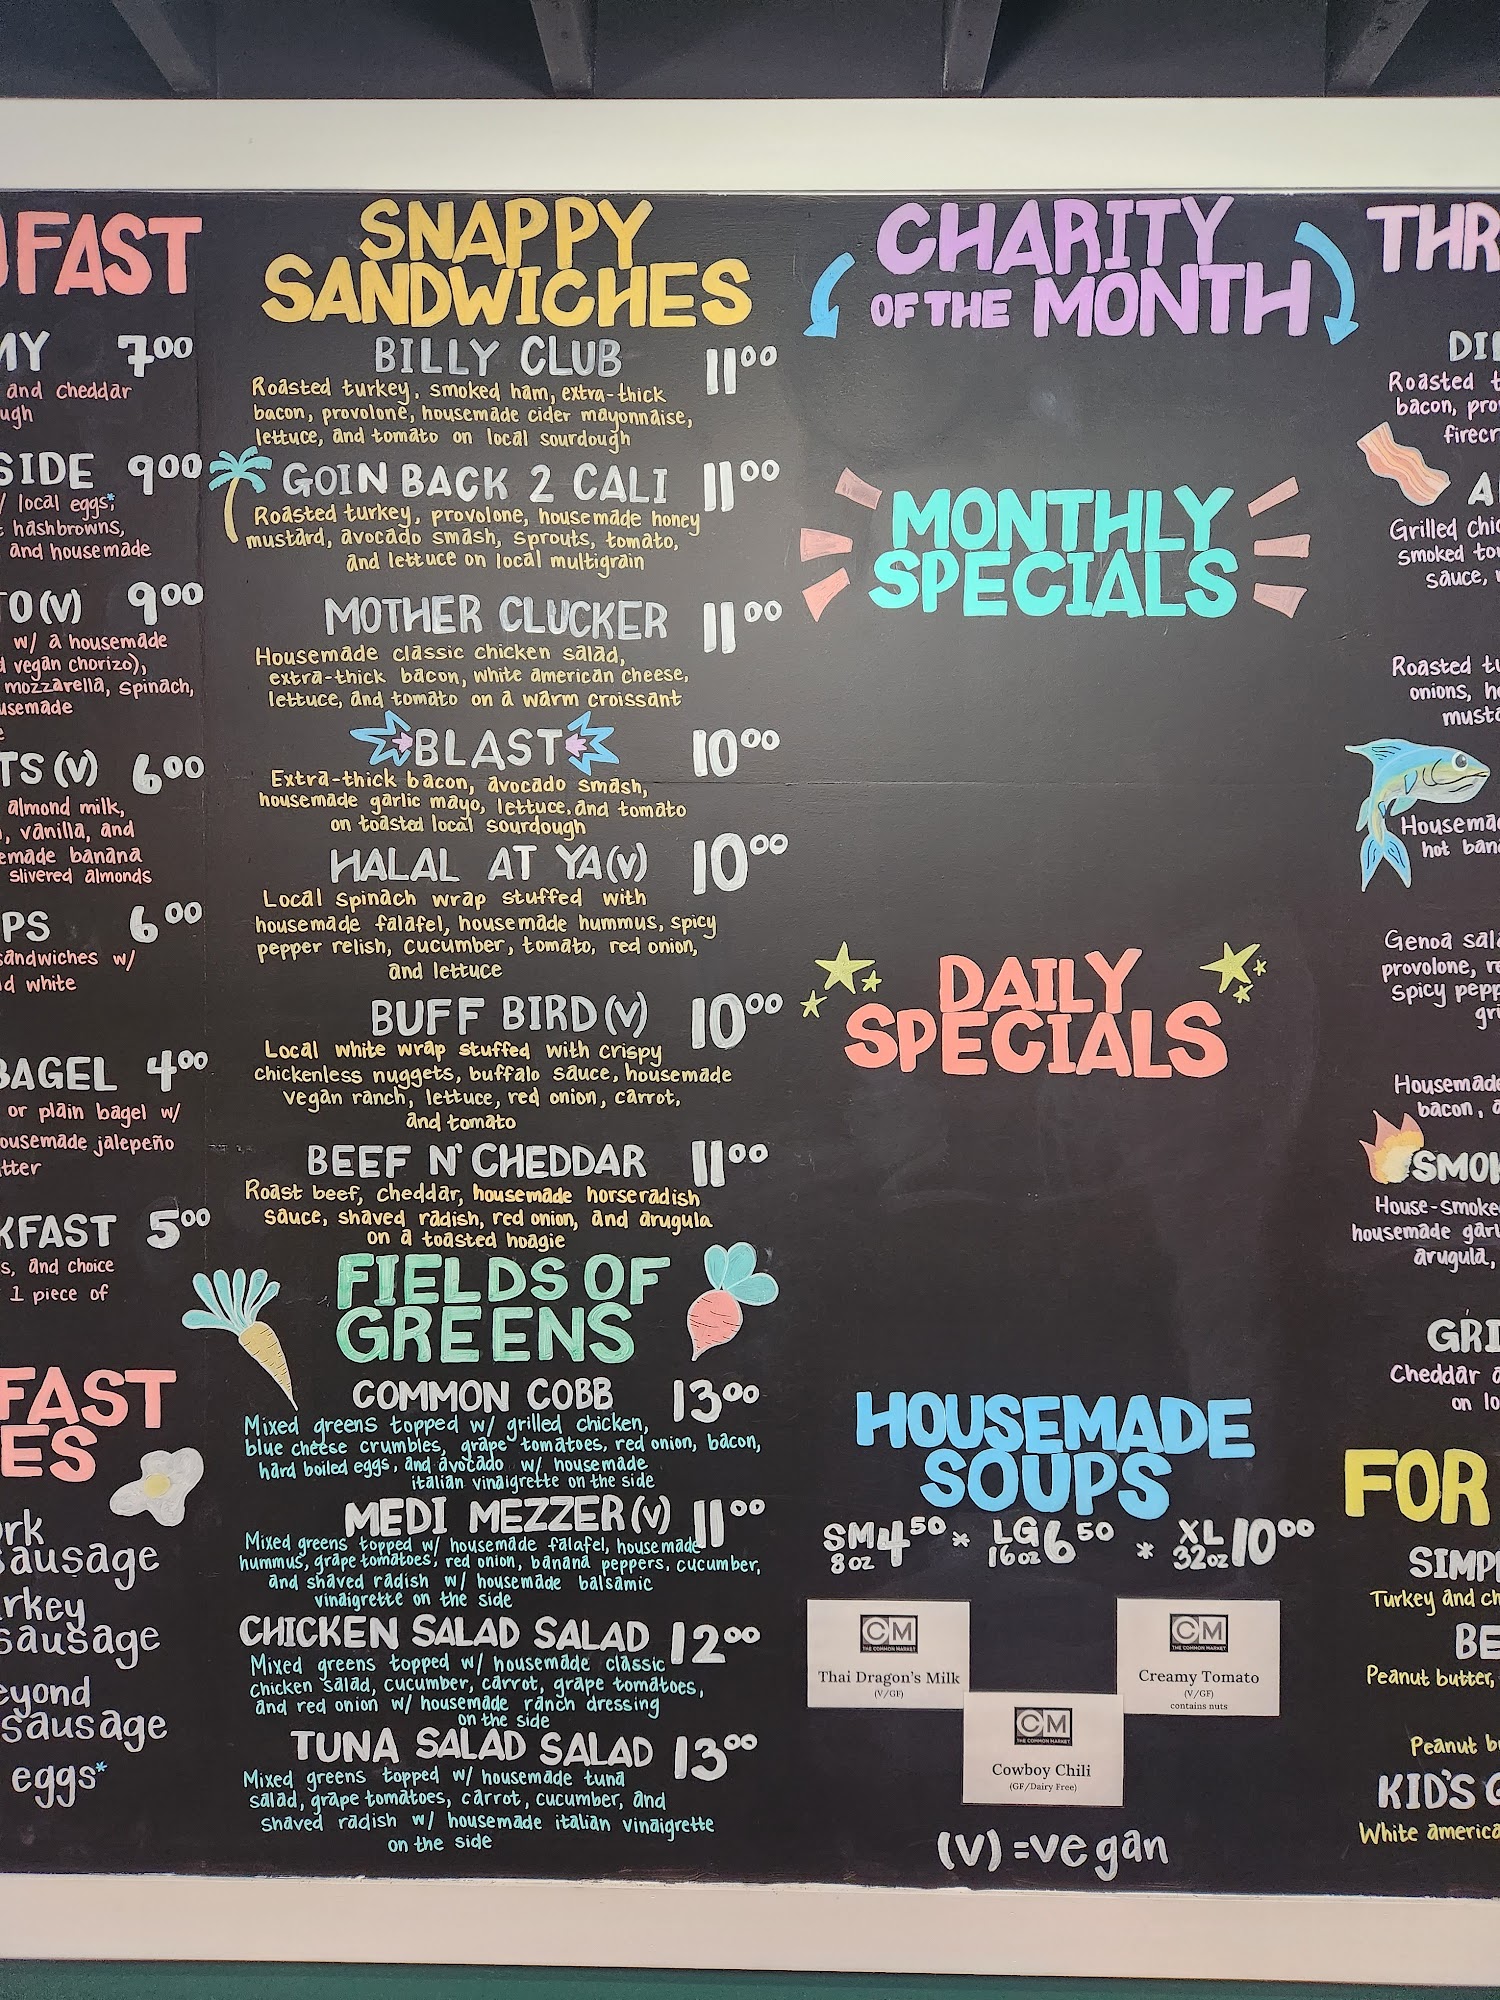 FAST
MY 7.00
and cheddar
ugh
SIDE 9.00
local eggs*,
hashbrowns,
and housemade
TO (V) 9.00
w/ a housemade
vegan chorizo),
mozzarella, spinach,
usemade
TS (V) 6.00
almond milk,
, vanilla, and
emade banana
slivered almonds
PS 6.00
sandwiches w/
d white
BAGEL 4.00
or plain bagel w/
ousemade jalepeño
tter
KFAST 5.00
s, and choice
1 piece of
FAST
ES
ork
sausage
rkey
sausage
eyond
sausage
eggs*
SNAPPY
SANDWICHES
BILLY CLUB 11.00
Roasted turkey, smoked ham, extra-thick
bacon, provolone, housemade cider mayonnaise,
lettuce, and tomato on local sourdough
GOIN BACK 2 CALI 11.00
Roasted turkey, provolone, housemade honey
mustard, avocado smash, sprouts, tomato,
and lettuce on local multigrain
MOTHER CLUCKER 11.00
Housemade classic chicken salad,
extra-thick bacon, white american cheese,
lettuce, and tomato on a warm croissant
BLAST 10.00
Extra-thick bacon, avocado smash,
housemade garlic mayo, lettuce, and tomato
on toasted local sourdough
HALAL AT YA (V) 10.00
Local spinach wrap stuffed with
housemade falafel, housemade hummus, spicy
pepper relish, cucumber, tomato, red onion,
and lettuce
BUFF BIRD (V) 10.00
Local white wrap stuffed with crispy
chickenless nuggets, buffalo sauce, housemade
vegan ranch, lettuce, red onion, carrot,
and tomato
BEEF N' CHEDDAR 11.00
Roast beef, cheddar, housemade horseradish
sauce, shaved radish, red onion, and arugula
on a toasted hoagie
FIELDS OF
GREENS
COMMON COBB 13.00
Mixed greens topped w/ grilled chicken,
blue cheese crumbles, grape tomatoes, red onion, bacon,
hard boiled eggs, and avocado w/ housemade
italian vinaigrette on the side
MEDI MEZZER (V) 11.00
Mixed greens topped w/ housemade falafel, housemade
hummus, grape tomatoes, red onion, banana peppers, cucumber,
and shaved radish w/ housemade balsamic
vinaigrette on the side
CHICKEN SALAD SALAD 12.00
Mixed greens topped w/ housemade classic
chicken salad, cucumber, carrot, grape tomatoes,
and red onion w/ housemade ranch dressing
on the side
TUNA SALAD SALAD 13.00
Mixed greens topped w/ housemade tuna
salad, grape tomatoes, carrot, cucumber, and
shaved radish w/ housemade italian vinaigrette
on the side
CHARITY
OF THE MONTH
MONTHLY
SPECIALS
DAILY
SPECIALS
HOUSEMADE
SOUPS
SM 8oz 4.50 * LG 16oz 6.50 * XL 32oz 10.00
CM
THE COMMON MARKET
Thai Dragon's Milk
(V/GF)
CM
THE COMMON MARKET
Creamy Tomato
(V/GF)
contains nuts
CM
THE COMMON MARKET
Cowboy Chili
(GF/Dairy Free)
(V) = vegan
THR
DI
Roasted t
bacon, pro
firecr
A
Grilled chic
smoked to
sauce,
Roasted tu
onions, h
musta
Housema
hot ban
Genoa sala
provolone, re
spicy pepp
gri
Housemade
bacon, a
SMOK
House-smoke
housemade garl
arugula,
GRI
Cheddar a
on lo
FOR
SIMP
Turkey and ch
BE
Peanut butter,
Peanut b
KID'S G
White america